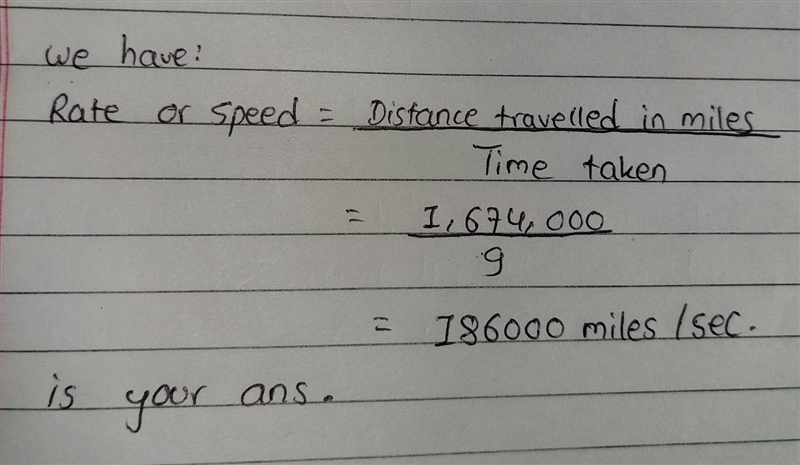 we have:
Rate or speed = Distance travelled in miles
Time taken
= 1,674,000
9
= 186000 miles/sec.
is your ans.